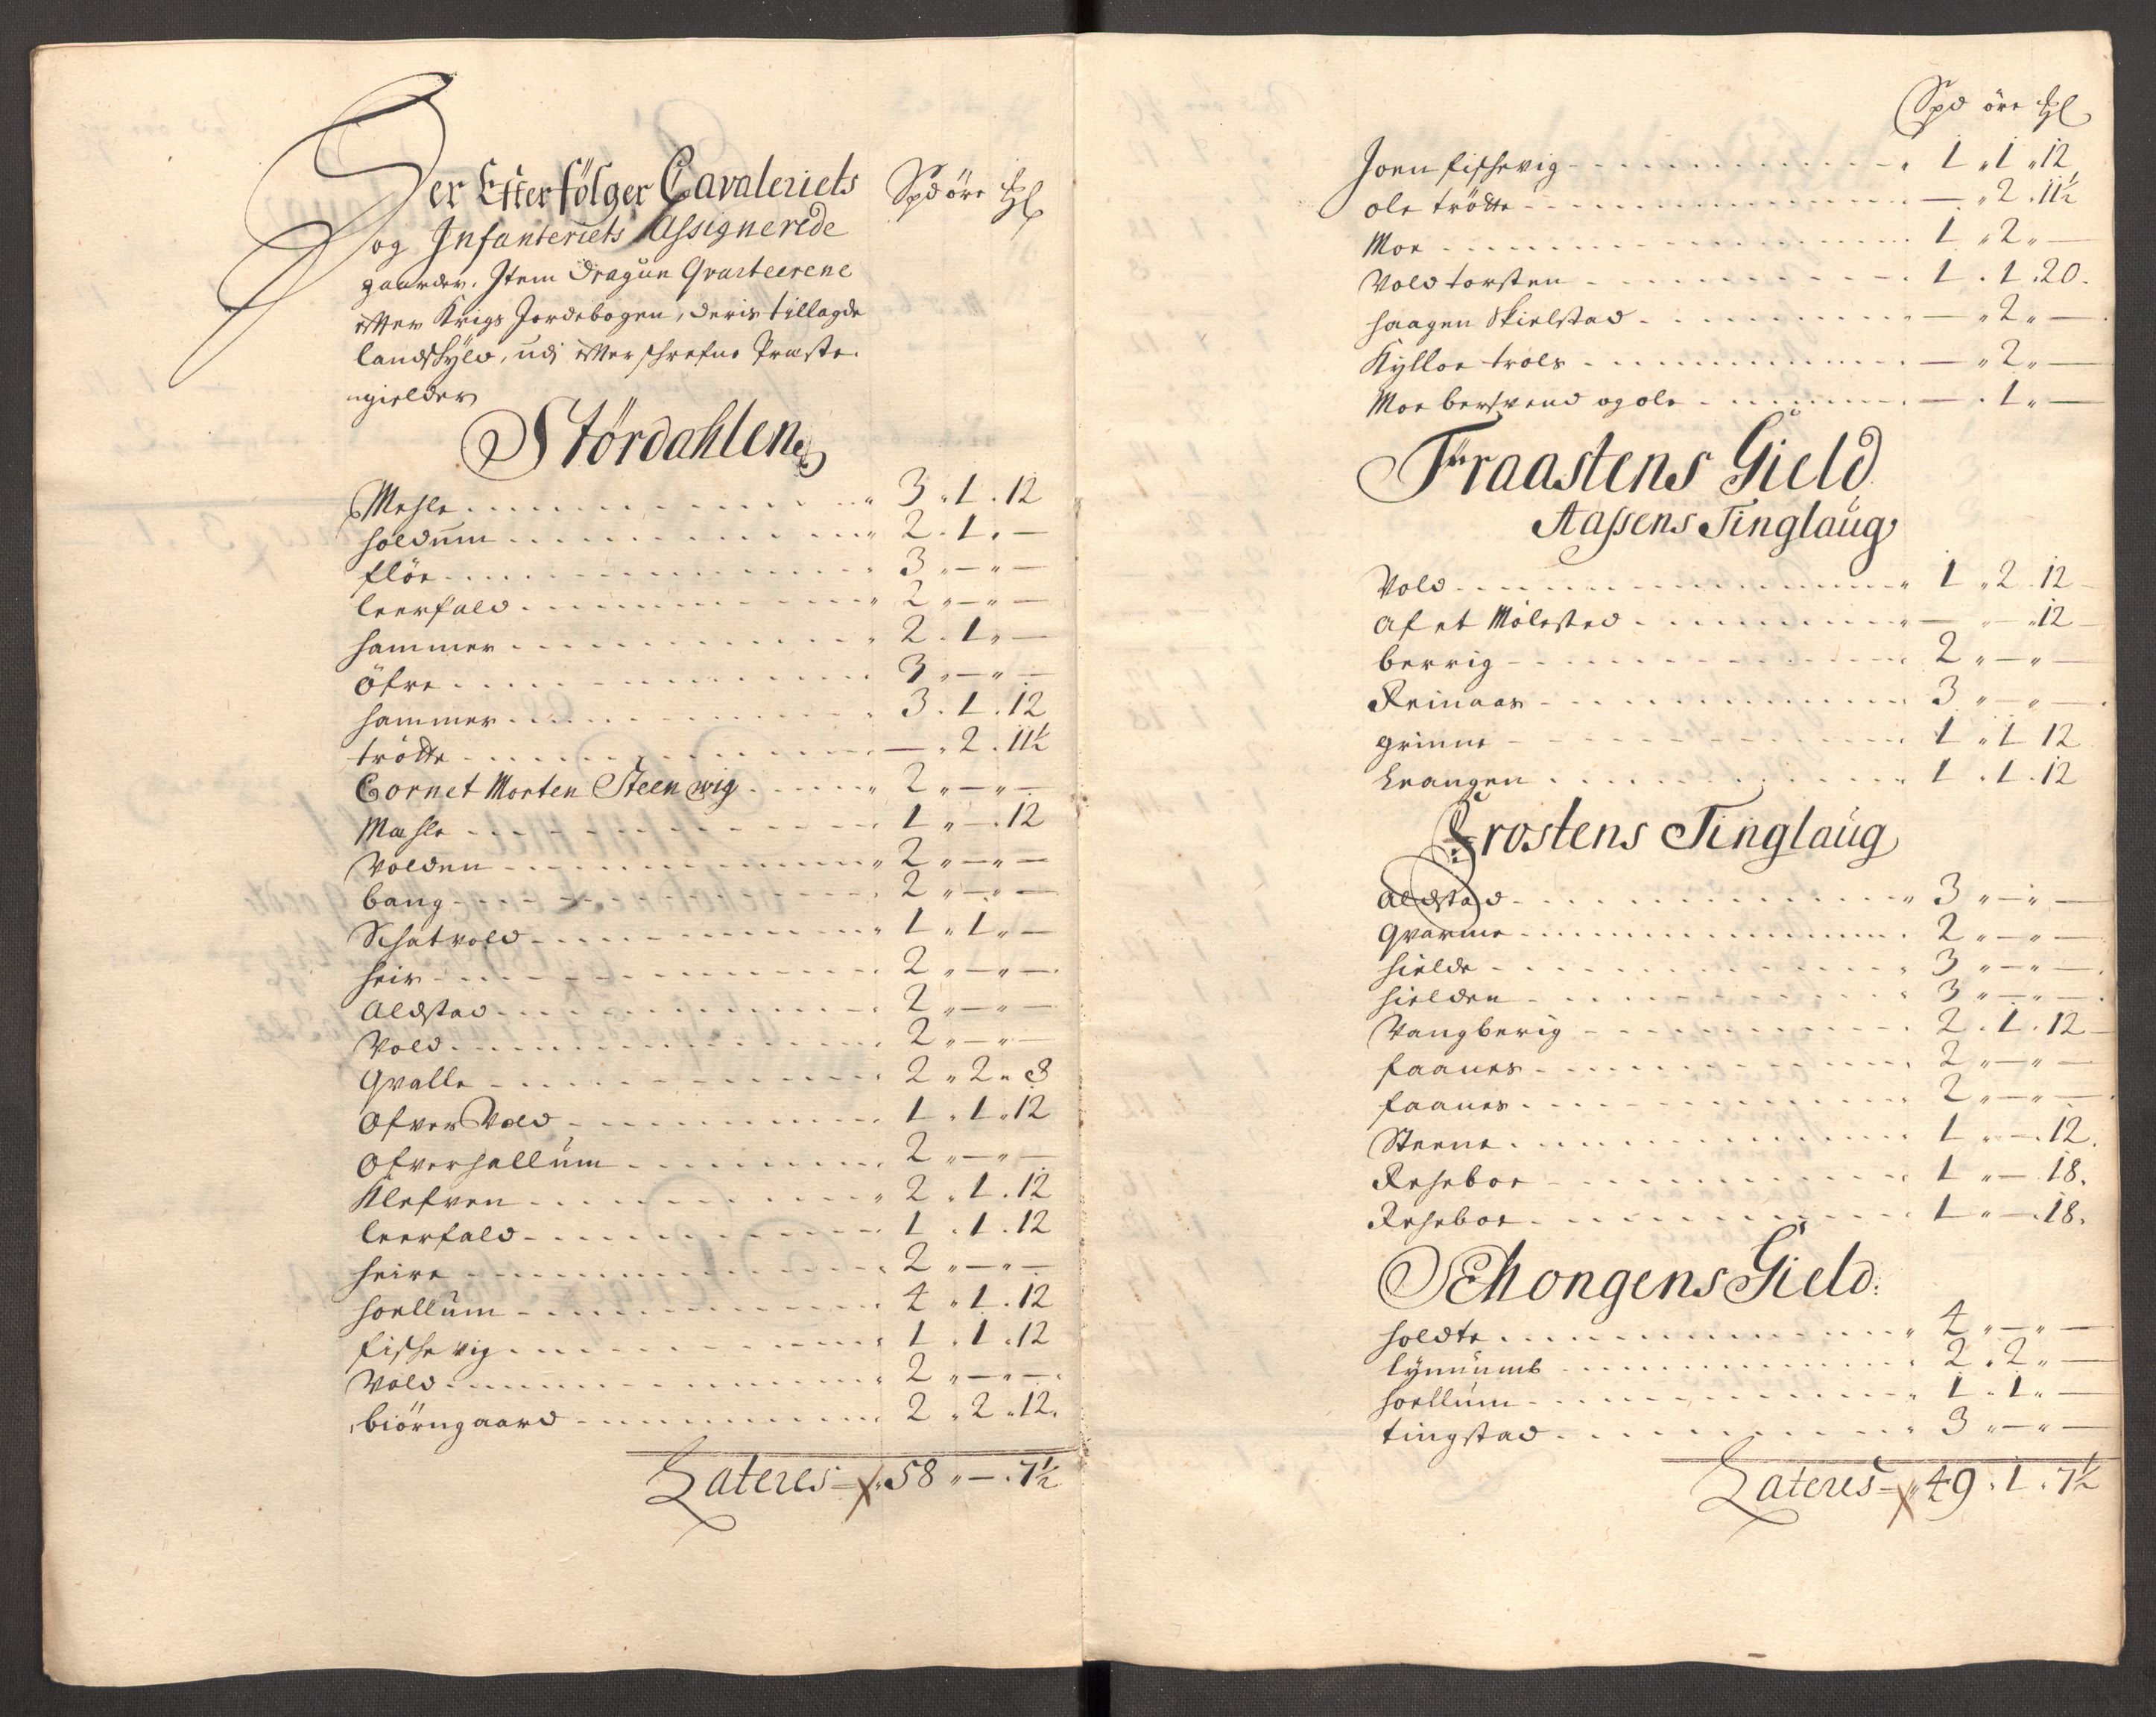 Her Efterfölger Cavaleriets Spd öre ℔
og Infanteriets Assignerede
gaarder. Item Dragun Qvarteerene
efter Krigs Jordebogen, deris tillagde
landskyld, udj efterschrefne Præste-
gielder
Stördahlen
Mehle 3 . 1 . 12
holdum 2 . 1 . —
flöe 3 . — . —
leerfald 2 . — . —
hammer 2 . 1 . —
öfre 3 . — . —
hammer 3 . 1 . 12
trötte — . 2 . 11½
Cornet Morten Steen wig 2 . — . —
Mæhle 1 . — . 12
Volden 2 . — . —
bang 2 . — . —
Schatvold 1 . 1 . —
heir 2 . — . —
Aldstad 2 . — . —
Vold 2 . — . —
Qvalle 2 . 2 . 8
Ofver Vold 1 . 1 . 12
Ofverhallum 2 . — . —
Klefven 2 . 1 . 12
leerfald 1 . 1 . 12
heire 2 . — . —
hoellum 4 . 1 . 12
fischevig 1 . 1 . 12
Vold 2 . — . —
biörngaard 2 . 2 . 12.
Lateres 58 . — . 7½
Spd öre ℔
Joen fischevig 1 . 1 . 12
ole trötte — . 2 . 11½
Moe 1 . 2 . —
Vold torsten 1 . 1 . 20.
haagen Skielstad — . 2 . —
Kylloe trols — . 2 . —
Moe bersvend og ole — . 1 . —
Fraastens Gield
Aassens Tinglaug
Vold 1 . 2 . 12
Af et Mölested — . — . 12
berrig 2 . — . —
Reinaas 3 . — . —
grinne 1 . 1 . 12
Levangen 1 . 1 . 12
Frostens Tinglaug
Aldstad 3 . — . —
Qvarme 2 . — . —
hielde 3 . — . —
hielden 3 . — . —
Vangberig 2 . 1 . 12
faanes 2 . — . —
faanes 2 . — . —
Steene 1 . — . 12.
Reheboe 1 . — . 18.
Reheboe 1 . — . 18.
Schongens Gield:
holdte 4 . — . —
lynnumb 2 . 2 . —
hoellum 1 . 1 . —
tingstad 3 . — . —
Lateres 49 . 1 . 7½